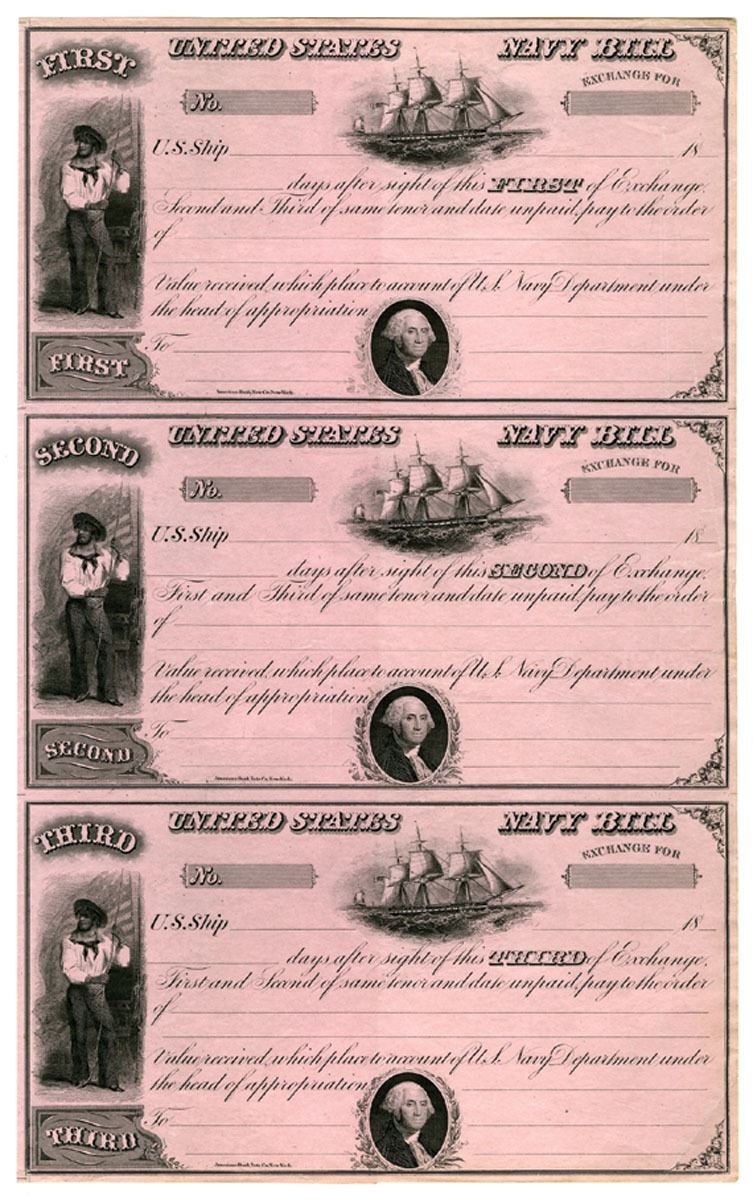 FIRST
UNITED STATES NAVY BILL
No.
EXCHANGE FOR
U.S. Ship 18
days after sight of this FIRST of Exchange,
Second and Third of same tenor and date unpaid, pay to the order
of
Value received, which place to account of U.S. Navy Department under
the head of appropriation
To
FIRST
American Bank Note Co. New York.
SECOND
UNITED STATES NAVY BILL
No.
EXCHANGE FOR
U.S. Ship 18
days after sight of this SECOND of Exchange,
First and Third of same tenor and date unpaid, pay to the order
of
Value received, which place to account of U.S. Navy Department under
the head of appropriation
To
SECOND
American Bank Note Co. New York.
THIRD
UNITED STATES NAVY BILL
No.
EXCHANGE FOR
U.S. Ship 18
days after sight of this THIRD of Exchange,
First and Second of same tenor and date unpaid, pay to the order
of
Value received, which place to account of U.S. Navy Department under
the head of appropriation
To
THIRD
American Bank Note Co. New York.